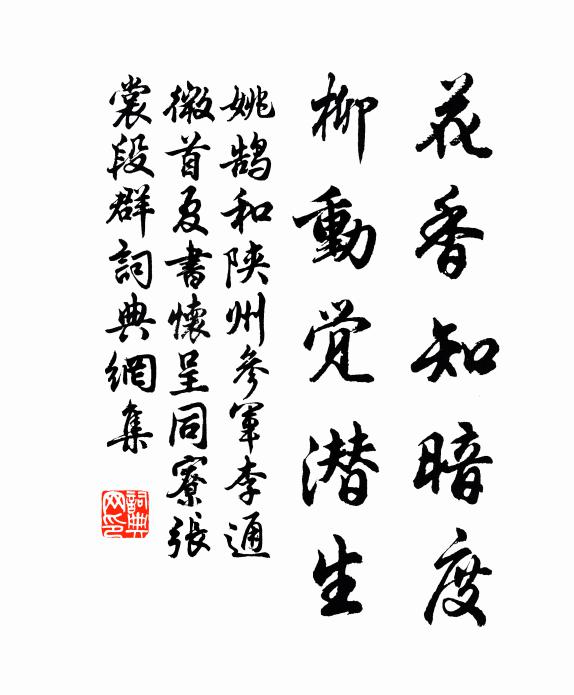 花香知暗度
柳動觉潜生
姚鹄和陝州參軍李通
微首夏書懷呈同寮張
裳段群詞典網集
詞典网印